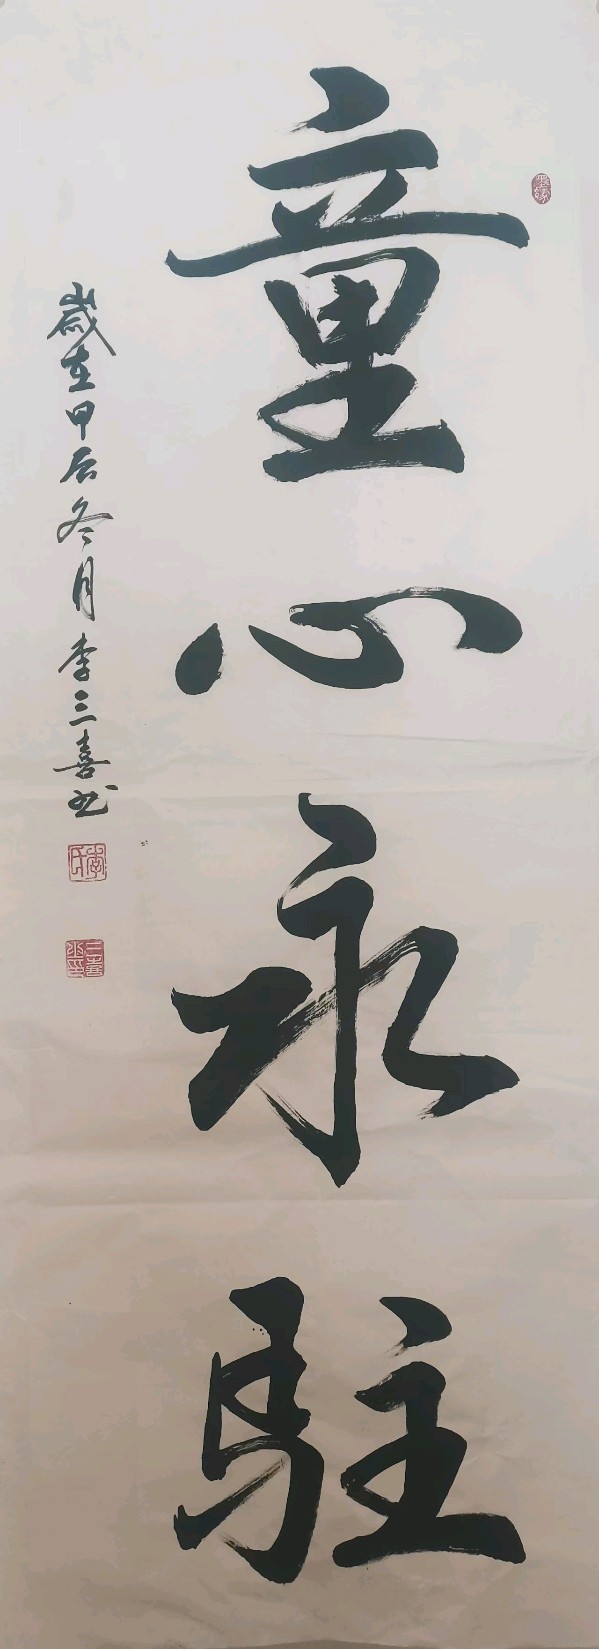 童心永駐
歲在甲辰冬月李三喜书
李氏
三喜